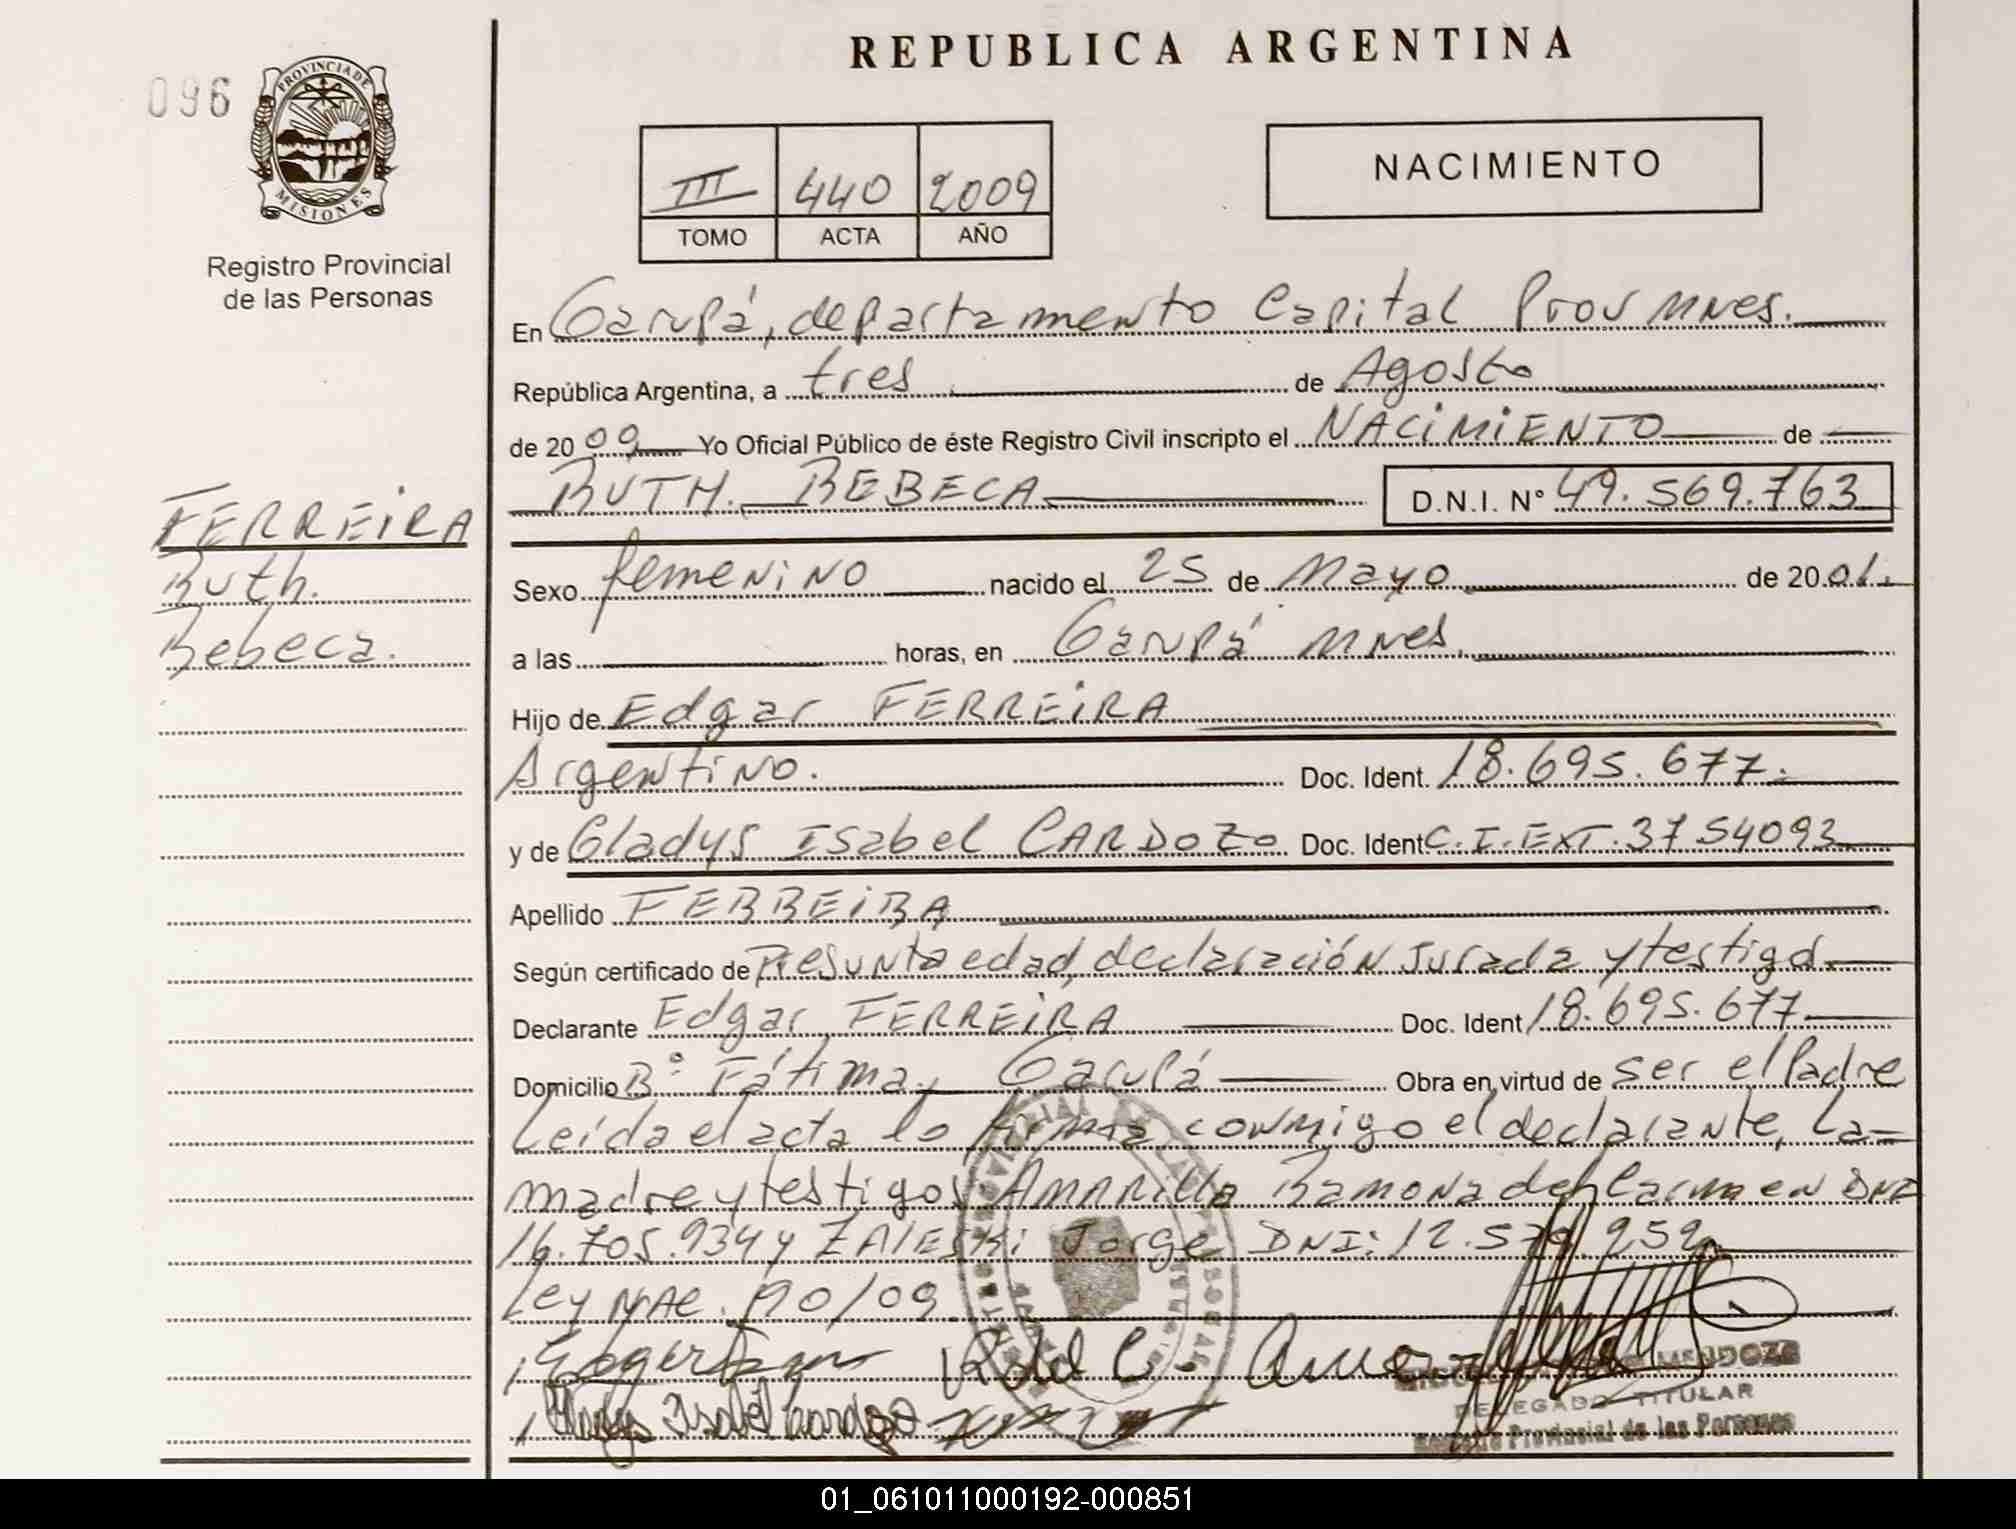 REPUBLICA ARGENTINA
096
PROVINCIA DE
MISIONES
Registro Provincial
de las Personas
III 440 2009
TOMO ACTA AÑO
NACIMIENTO
En Garupá, departamento Capital Prov Mnes.
República Argentina, a tres de Agosto
de 2009 Yo Oficial Público de éste Registro Civil inscripto el NACIMIENTO de
RUTH REBECA D.N.I. Nº 49.569.763
FERREIRA
Ruth
Rebeca.
Sexo femenino nacido el 25 de Mayo de 2001.
a las horas, en Garupá Mnes.
Hijo de Edgar FERREIRA
Argentino. Doc. Ident. 18.695.677.
y de Gladys Isabel CARDOZO Doc. Ident C.I.EXT.3754093
Apellido FERREIRA
Según certificado de Presunta edad, declaración Jurada y testigo.
Declarante Edgar FERREIRA Doc. Ident 18.695.677
Domicilio Bº Fátima, Garupá Obra en virtud de ser el Padre
Leída el acta lo firma conmigo el declarante, La
madre y testigos AMARILLA Ramona del Carmen DNI
16.705.934 y ZALESKI Jorge DNI: 12.579.952
Ley NAC. 190/09
Gladys Isabel Cardozo
MENDOZA
DELEGADO TITULAR
Registro Provincial de las Personas
01_061011000192-000851